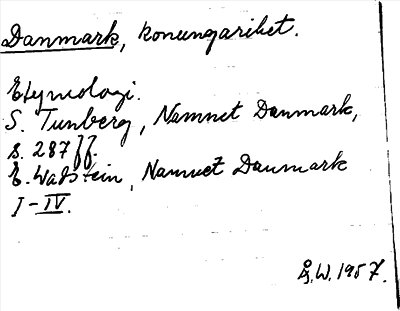 Danmark, konungariket.
Etymologi.
S. Tunberg, Namnet Danmark,
s. 287 ff.
E. Wadstein, Namnet Danmark
I-IV.
Å.W. 1957.